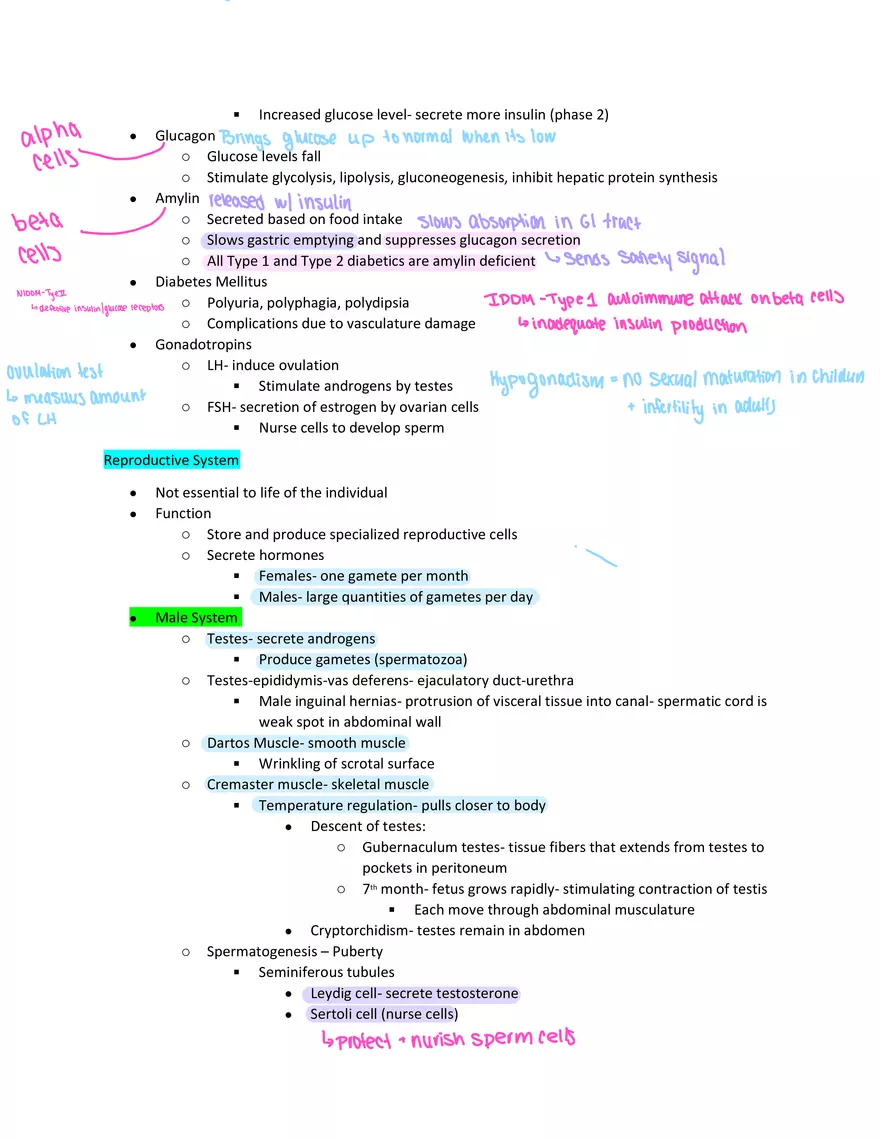 ▪ Increased glucose level- secrete more insulin (phase 2)
alpha cells
• Glucagon Brings glucose up to normal when its low
o Glucose levels fall
o Stimulate glycolysis, lipolysis, gluconeogenesis, inhibit hepatic protein synthesis
• Amylin released w/ insulin
beta cells
o Secreted based on food intake slows absorption in GI tract
o Slows gastric emptying and suppresses glucagon secretion
o All Type 1 and Type 2 diabetics are amylin deficient ↳ Sends satiety signal
• Diabetes Mellitus
NIDDM-Type II
↳ defective insulin/glucose receptors
o Polyuria, polyphagia, polydipsia
IDDM-Type 1 autoimmune attack on beta cells
o Complications due to vasculature damage
↳ inadequate insulin production
• Gonadotropins
o LH- induce ovulation
ovulation test
↳ measures amount
of LH
▪ Stimulate androgens by testes
Hypogonadism = no sexual maturation in children
+ infertility in adults
o FSH- secretion of estrogen by ovarian cells
▪ Nurse cells to develop sperm
Reproductive System
• Not essential to life of the individual
• Function
o Store and produce specialized reproductive cells
o Secrete hormones
▪ Females- one gamete per month
▪ Males- large quantities of gametes per day
• Male System
o Testes- secrete androgens
▪ Produce gametes (spermatozoa)
o Testes-epididymis-vas deferens- ejaculatory duct-urethra
▪ Male inguinal hernias- protrusion of visceral tissue into canal- spermatic cord is
weak spot in abdominal wall
o Dartos Muscle- smooth muscle
▪ Wrinkling of scrotal surface
o Cremaster muscle- skeletal muscle
▪ Temperature regulation- pulls closer to body
• Descent of testes:
o Gubernaculum testes- tissue fibers that extends from testes to
pockets in peritoneum
o 7th month- fetus grows rapidly- stimulating contraction of testis
▪ Each move through abdominal musculature
• Cryptorchidism- testes remain in abdomen
o Spermatogenesis – Puberty
▪ Seminiferous tubules
• Leydig cell- secrete testosterone
• Sertoli cell (nurse cells)
↳ protect + nurish sperm cells